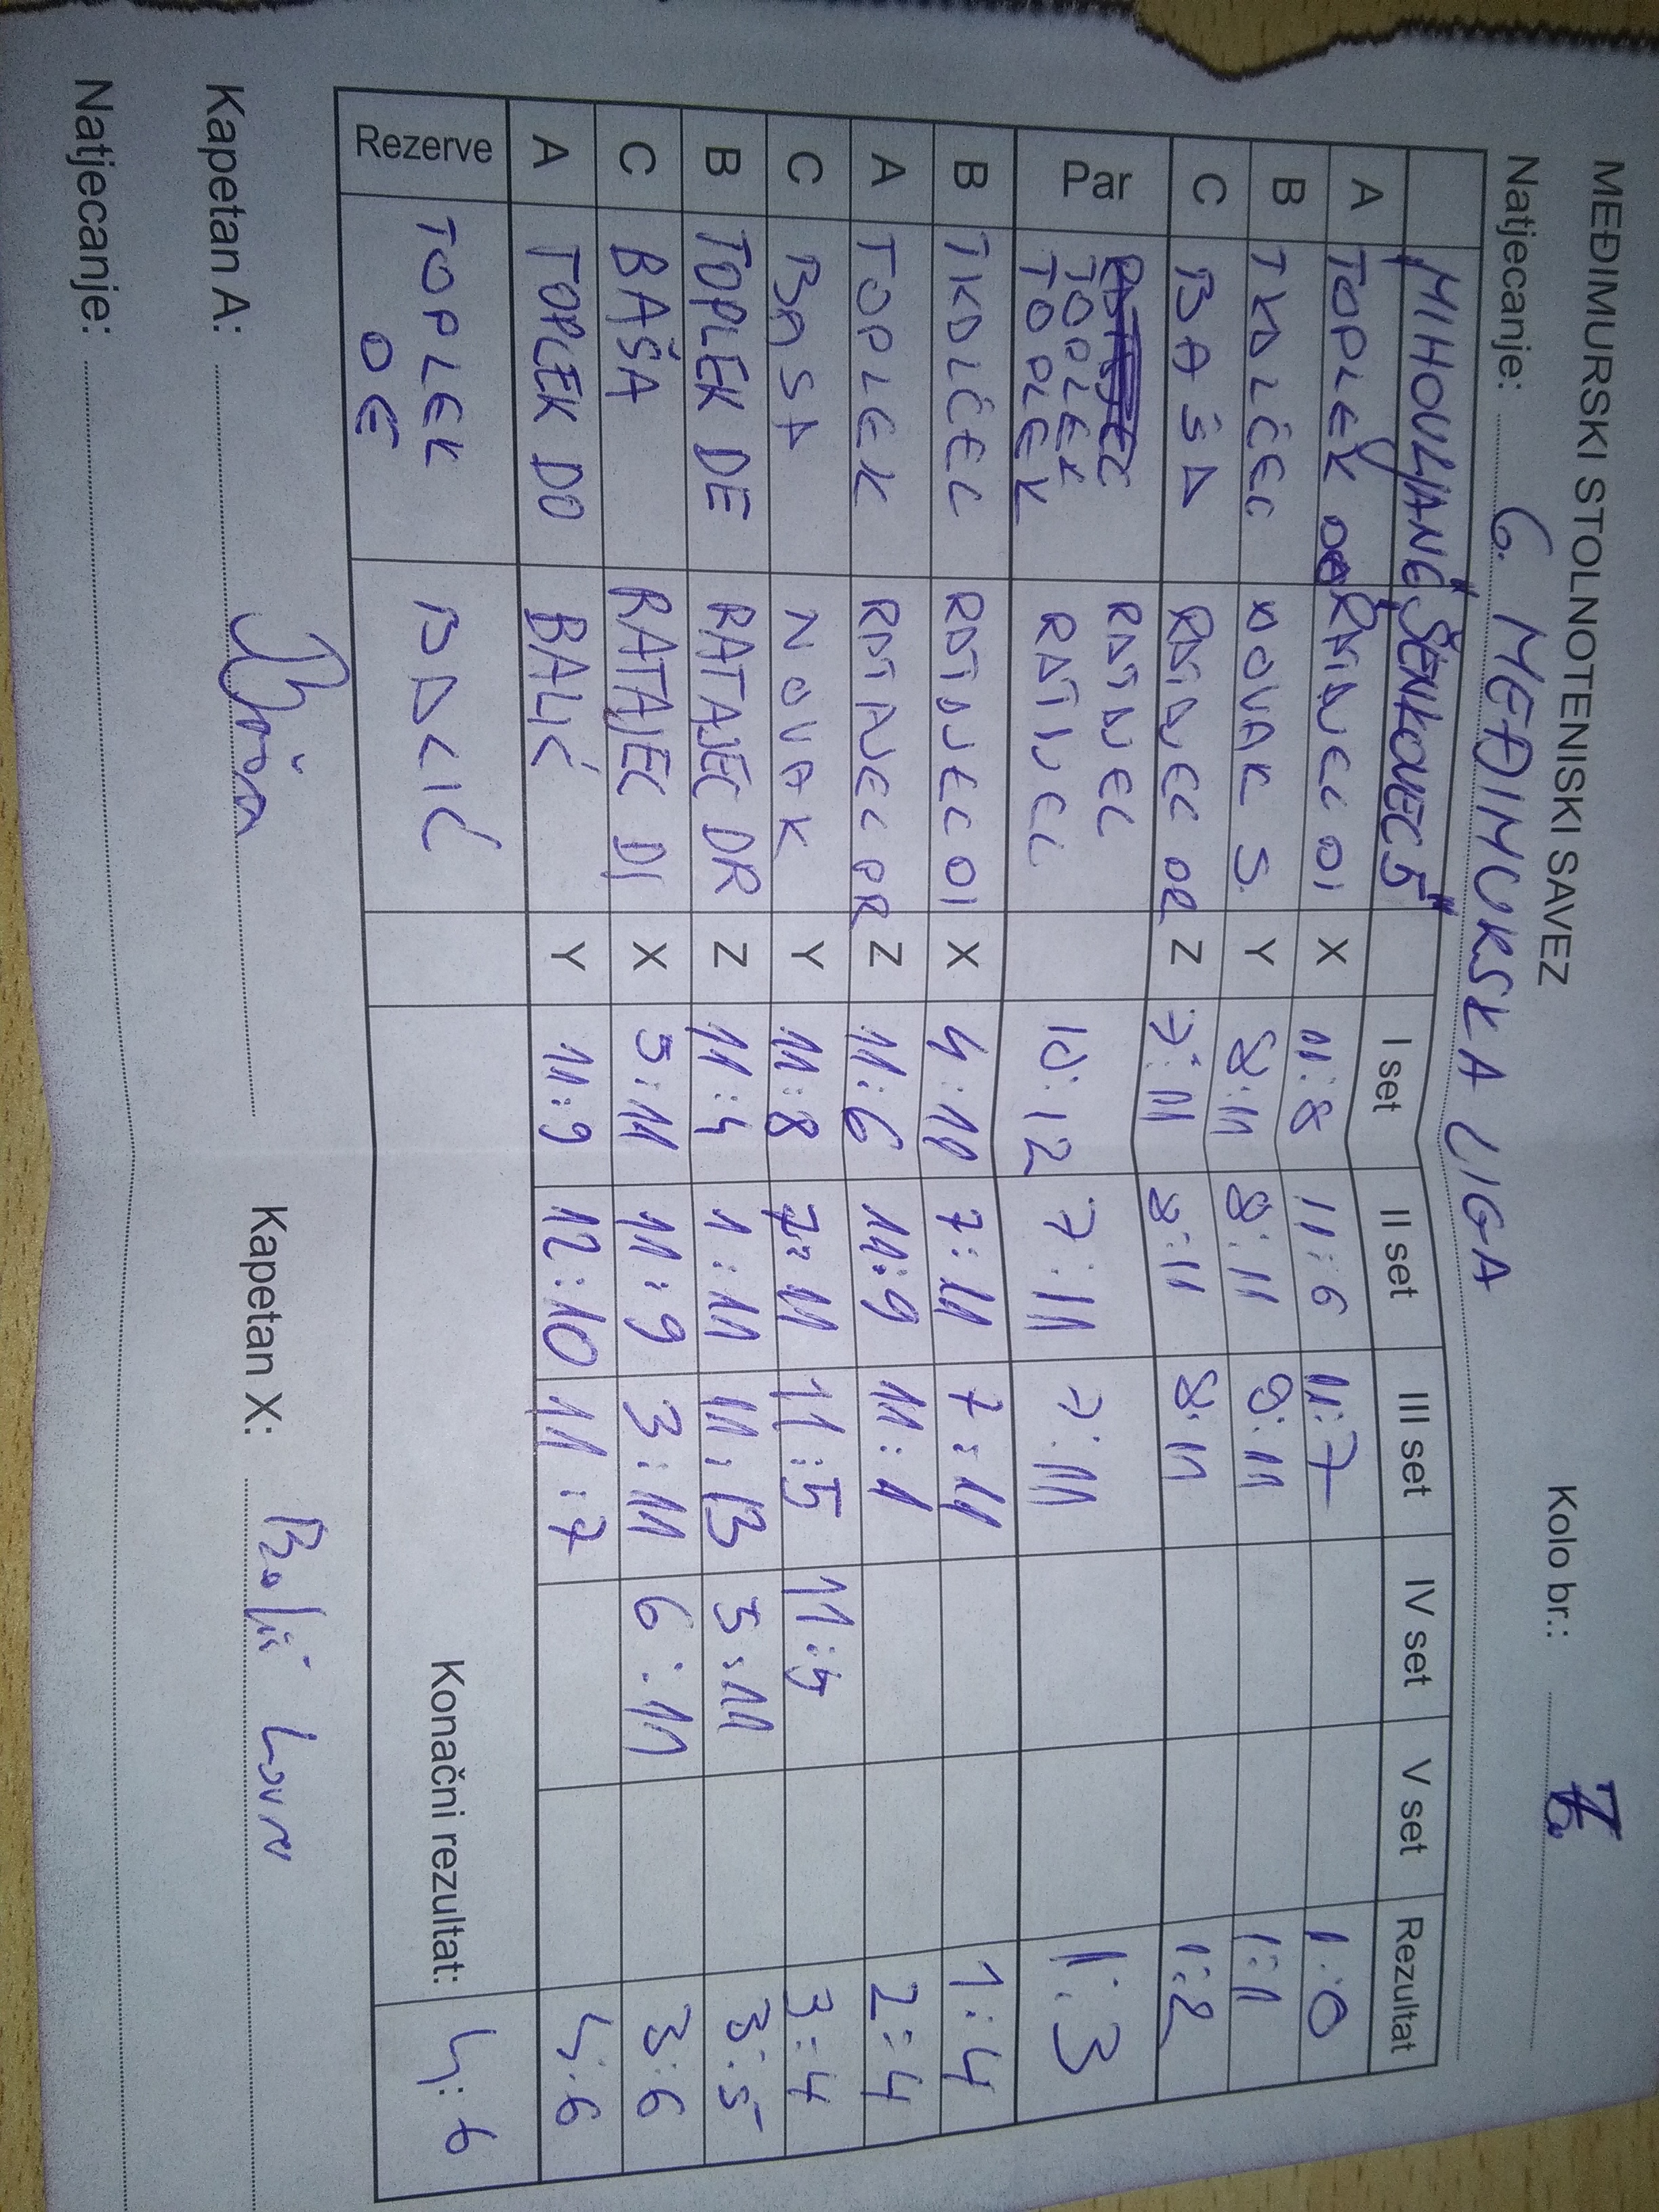 MEĐIMURSKI STOLNOTENISKI SAVEZ
Natjecanje: 6. MEĐIMURSKA LIGA Kolo br.: 7.
"MIHOVLJANĆ" "ŠENKOVEC 5" I set II set III set IV set V set Rezultat
A TOPLEK RATAJEC DI X 11:8 11:6 11:7 1:0
B TKALČEC NOVAK S. Y 8:11 8:11 9:11 1:1
C BAŠA RATAJEC DR Z 7:11 8:11 8:11 1:2
Par TOPLEK TOPLEK RATAJEC RATAJEC 10:12 7:11 7:11 1:3
B TKALČEC RATAJEC DI X 4:11 7:11 7:11 1:4
A TOPLEK RATAJEC DR Z 11:6 11:9 11:1 2:4
C BAŠA NOVAK Y 11:8 7:11 11:5 11:5 3:4
B TOPLEK DE RATAJEC DR Z 11:4 1:11 11:13 5:11 3:5
C BAŠA RATAJEC DI X 5:11 11:9 3:11 6:11 3:6
A TOPLEK DO BALIĆ Y 11:9 12:10 11:7 4:6
Rezerve TOPLEK DE BALIĆ Konačni rezultat: 4:6
Kapetan A: Bašа Kapetan X: Balić Lovro
Natjecanje: